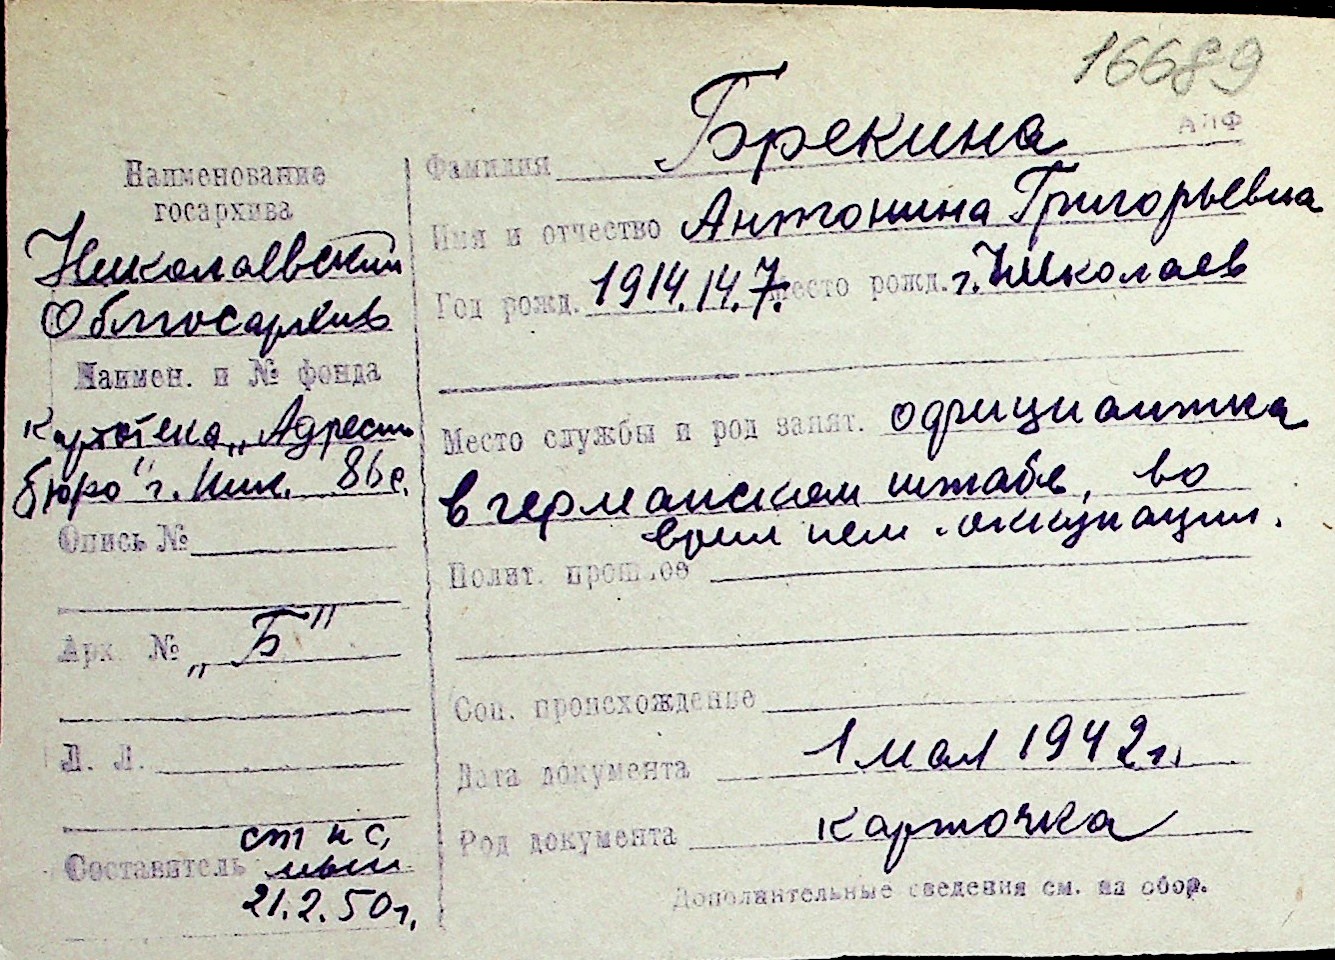 16689
АПФ
Наименование
госархива
Николаевский
Облгосархив
Наимен. и № фонда
Картотека „Адресн
бюро" г. Ник. 86 с.
Опись №
Арх. № „Б"
Л. Л.
Составитель
21.2.50 г.
Фамилия Брекина
Имя и отчество Антонина Григорьевна
Год рожд. 1914.14.7. Место рожд. г. Николаев
Место службы и род занят. официантка
в германском штабе, во
врем нем. оккупации.
Полит. прошлое
Соц. происхождение
Дата документа 1 мая 1942 г.
Род документа карточка
Дополнительные сведения см. на обор.